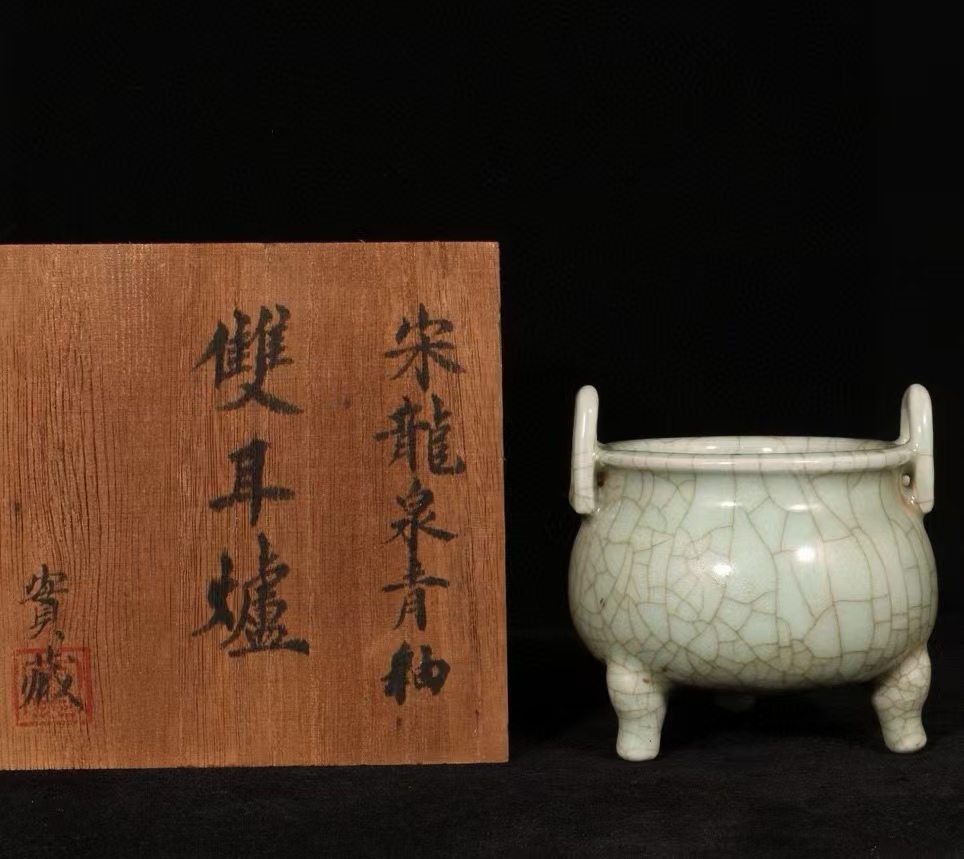 宋龍泉青釉
雙耳爐
寳藏